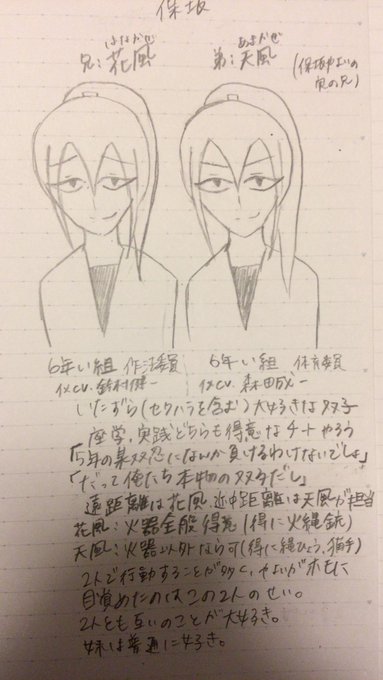 保坂
はなかぜ
兄:花風
あまかぜ
弟:天風
(保坂やよいの
実の兄)
6年い組 作法委員
イメcv.鈴村健一
6年い組 体育委員
イメcv.森田成一
いたずら(セクハラを含む)大好きな双子
座学、実践どちらも得意なチートやろう
「5年の某双忍になんか負けるわけないでしょ」
「だって俺たち本物の双子だし」
遠距離は花風 近中距離は天風が担当
花風:火器全般得意(得に火縄銃)
天風:火器以外なら可(得に縄ひょう、猫手)
2人で行動することが多く、やよいがホモに
目覚めたのはこの2人のせい。
2人とも互いのことが大好き。
妹は普通に好き。